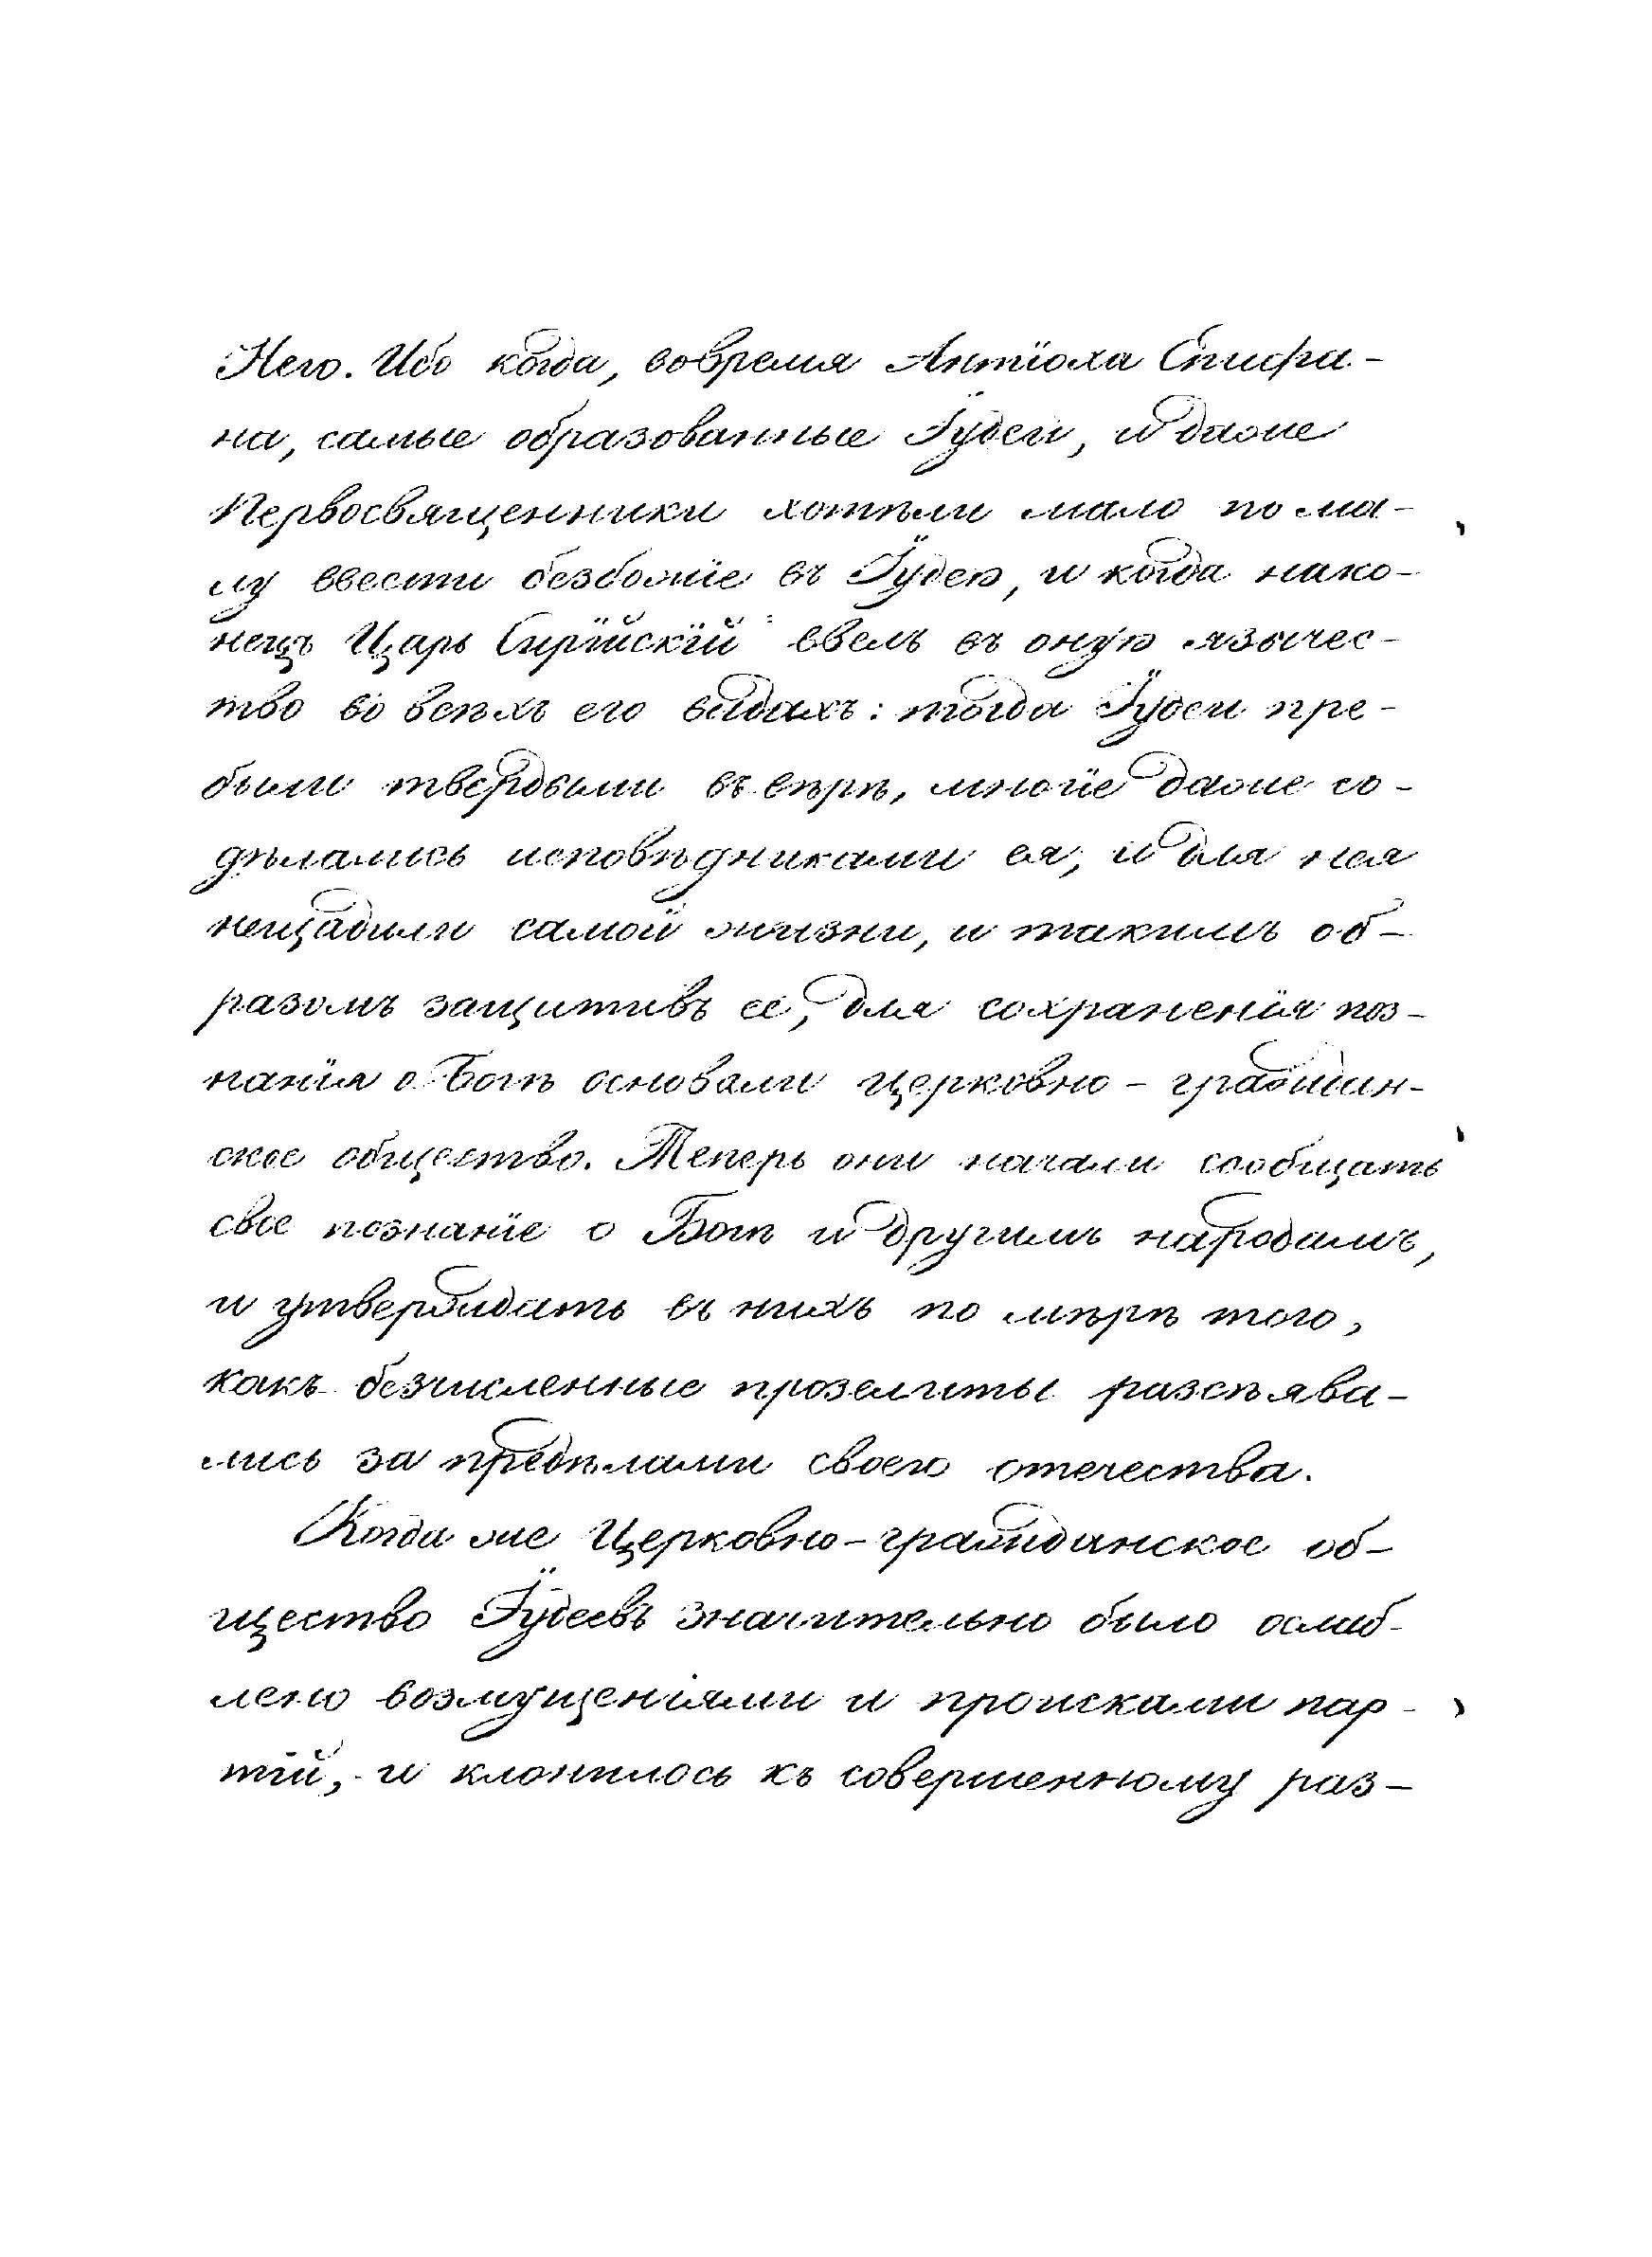 Него. Ибо когда, вовремя Антіоха Епифа-
на, самые образованные Іудеи, и даже
Первосвященники хотѣли мало по ма-
лу ввести безбожіе въ Іудею, и когда нако-
нецъ Царь Сирійскій ввелъ въ оную язычес-
тво во всѣхъ его видахъ: тогда Іудеи пре-
были твердыми въ вѣрѣ, многіе даже со-
дѣлались исповѣдниками ея, и для нея
нещадили самой жизни, и такимъ об-
разомъ защитивъ ее, для сохраненія поз-
нанія о Богѣ основали церковно-граждан-
ское общество. Теперь они начали сообщать
свое познаніе о Богѣ и другимъ народамъ,
и утверждать въ нихъ по мѣрѣ того,
какъ безчисленные прозелиты разсѣява-
лись за предѣлами своего отечества.
Когда же Церковно-гражданское об-
щество Іудеевъ значительно было ослаб-
лено возмущеніями и происками пар-
тій, и клонилось къ совершенному раз-